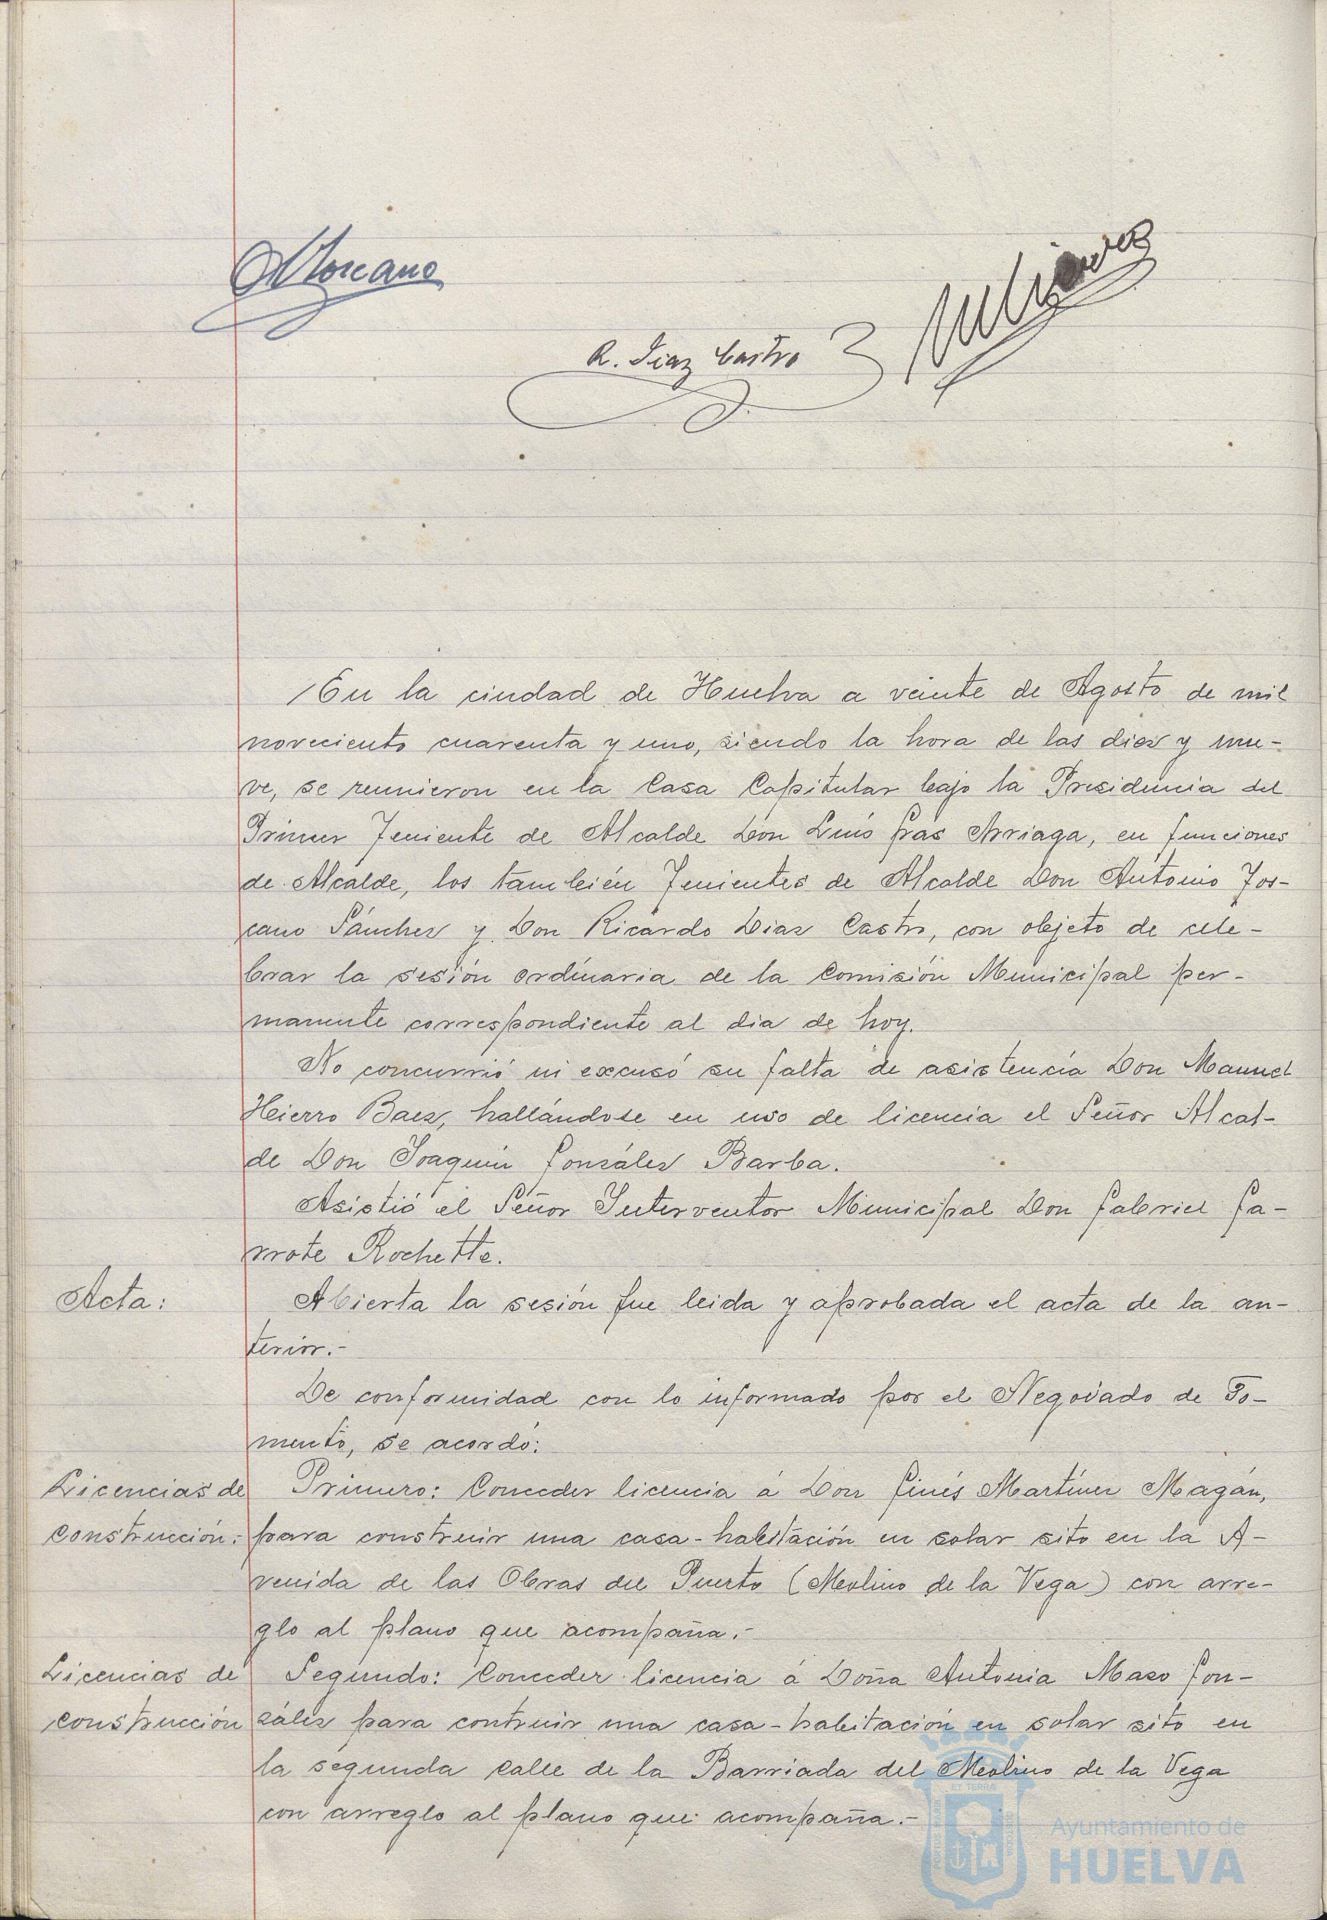 AToscano
R. Diaz Castro
En la ciudad de Huelva a veinte de Agosto de mil
noveciento cuarenta y uno, siendo la hora de las diez y nue-
ve, se reunieron en la Casa Capitular bajo la Presidencia del
Primer Teniente de Alcalde Don Luís Gras Arriaga, en funciones
de Alcalde, los también Tenientes de Alcalde Don Antonio Tos-
cano Sánchez y Don Ricardo Diaz Castro, con objeto de cele-
brar la sesión ordinaria de la Comisión Municipal per-
manente correspondiente al dia de hoy.
No concurrió ni excusó su falta de asistencia Don Manuel
Hierro Baez, hallándose en uso de licencia el Señor Alcal-
de Don Joaquin González Barba.
Asistió el Señor Interventor Municipal Don Gabriel Ga-
rrote Rochette.
Acta:
Abierta la sesión fue leida y aprobada el acta de la an-
terior.-
De conformidad con lo informado por el Negociado de Fo-
mento, se acordó:
Licencias de
construcción:
Primero: Conceder licencia á Don Ginés Martínez Magán,
para construir una casa-habitación en solar sito en la A-
venida de las Obras del Puerto (Molino de la Vega) con arre-
glo al plano que acompaña.-
Licencias de
construcción
Segundo: Conceder licencia á Doña Antonia Mazo Gon-
zález para contruir una casa-habitación en solar sito en
la segunda calle de la Barriada del Molino de la Vega
con arreglo al plano que acompaña.-
Ayuntamiento de
HUELVA